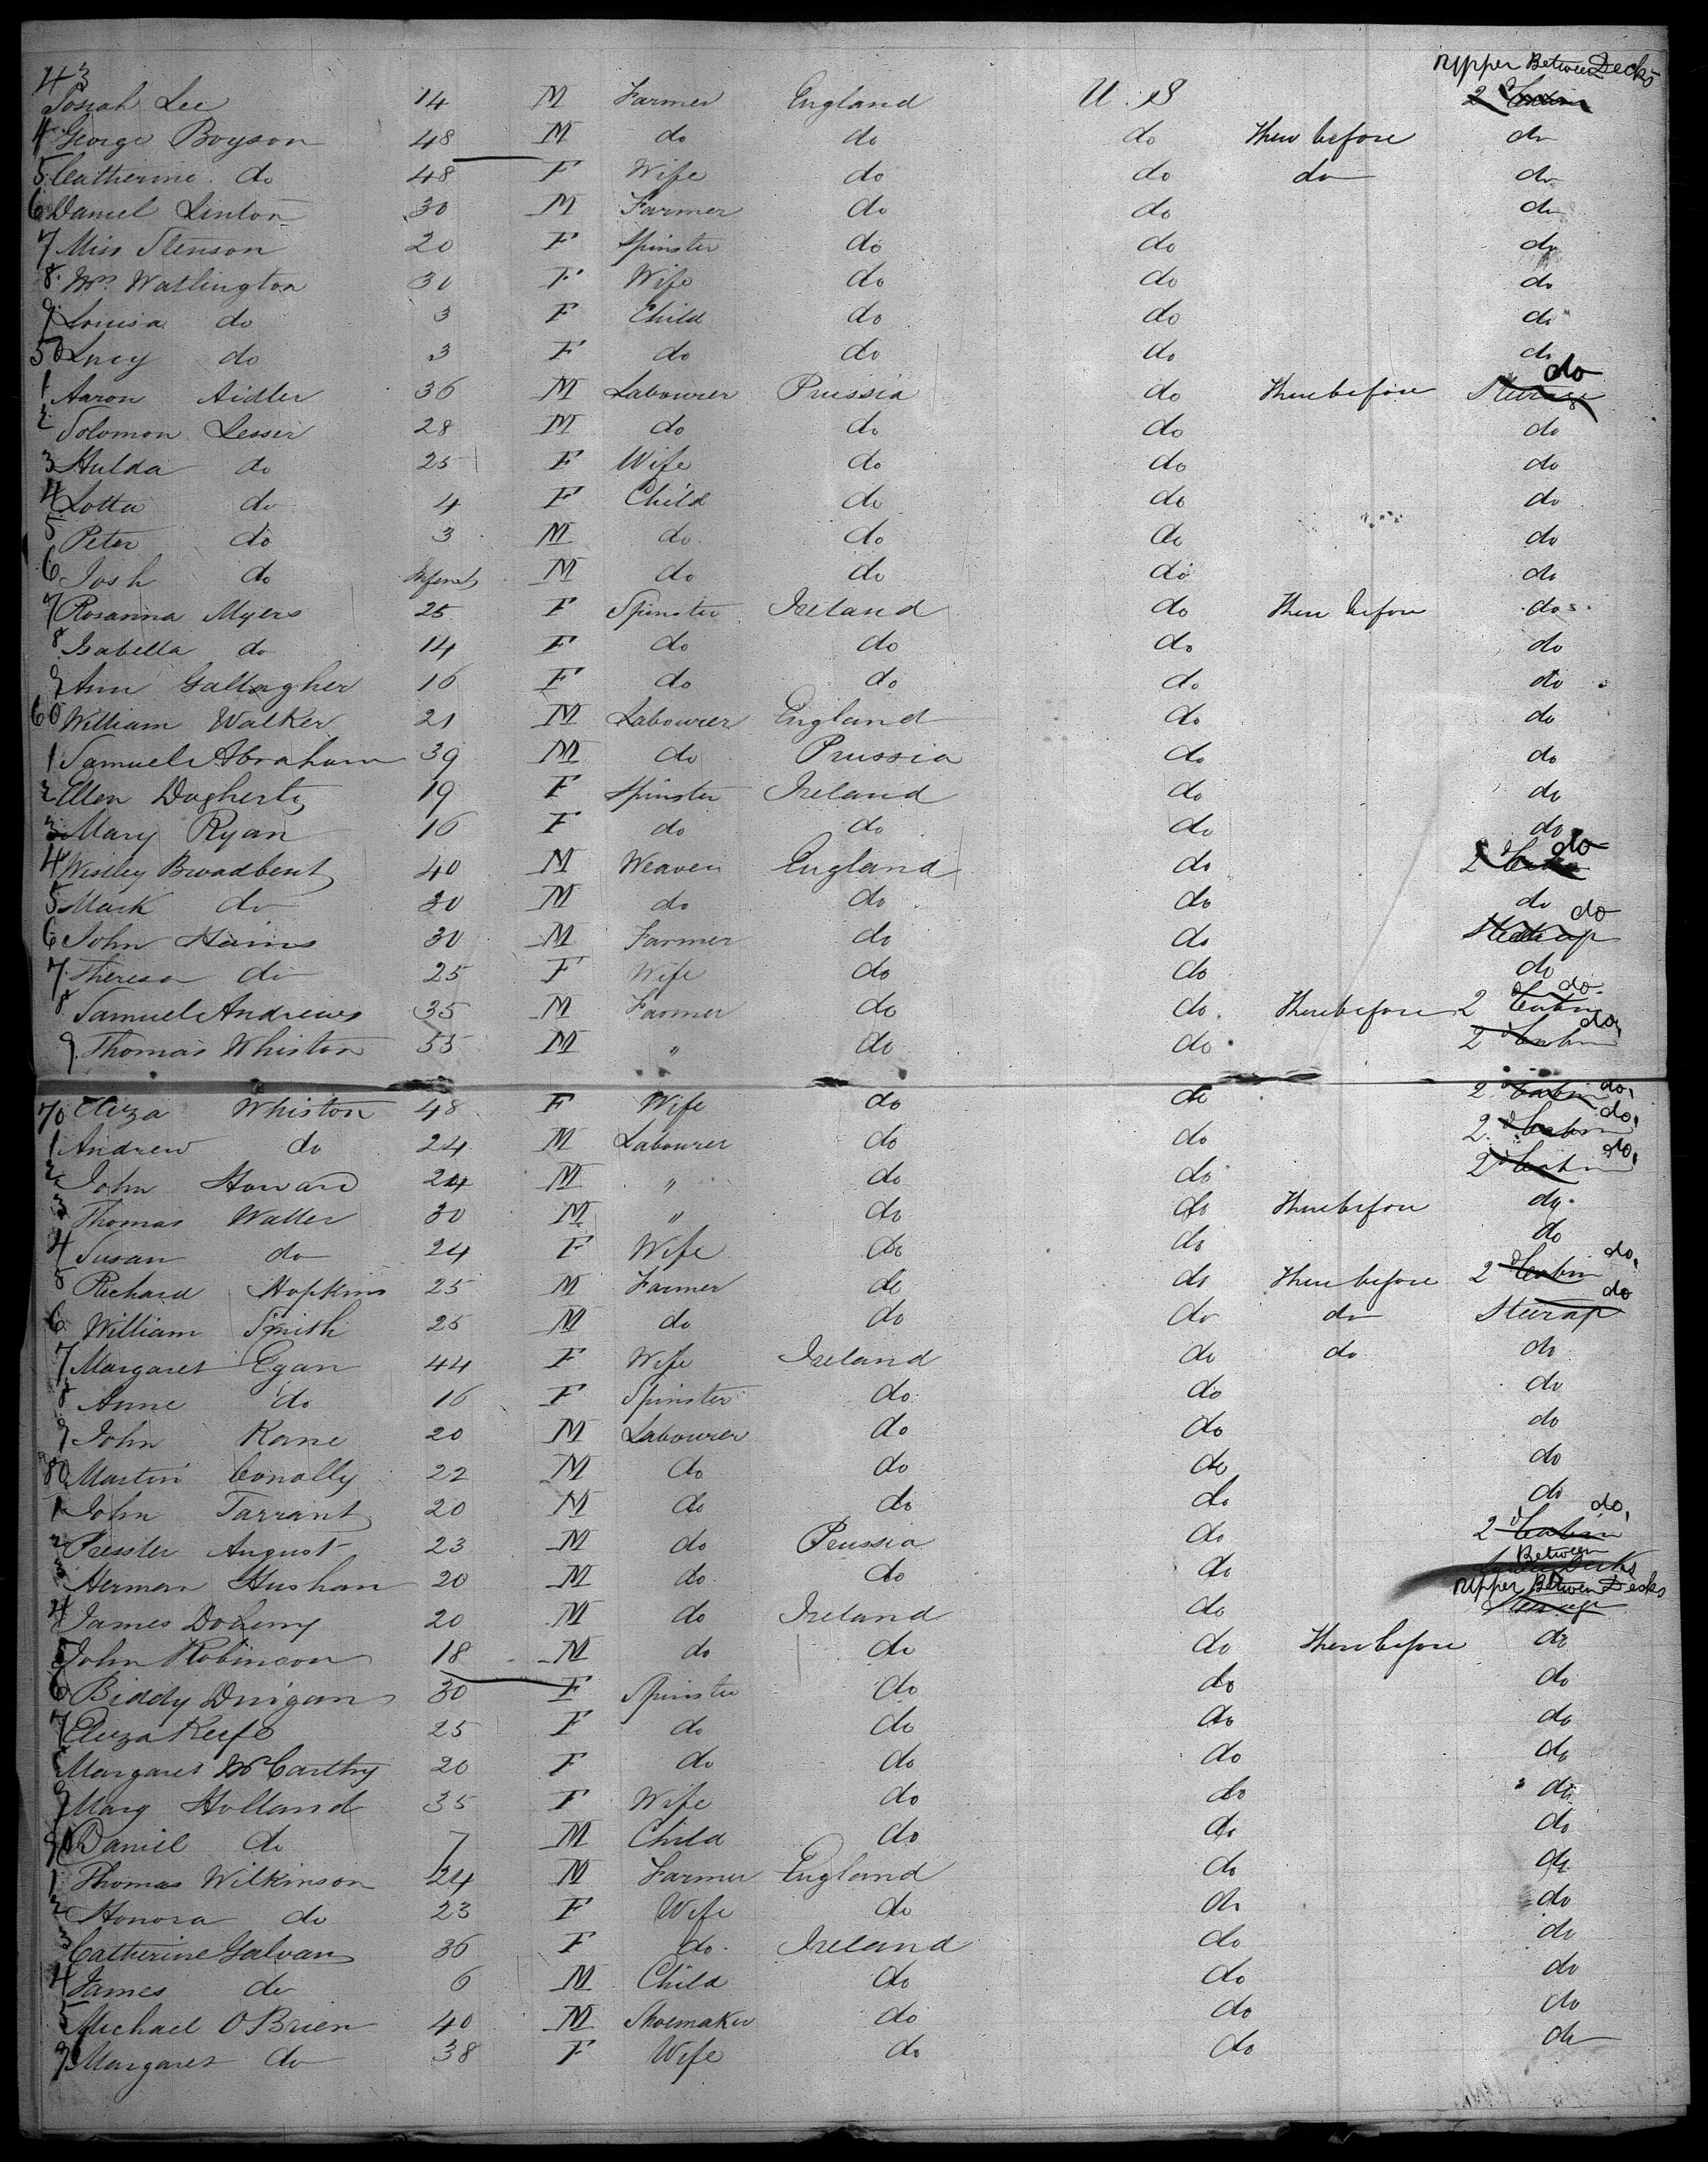 Upper Between Decks
43 Josiah Lee 14 M Farmer England U. S 2d Cabin
4 George Boyson 48 M do do do There before do
5 Catherine do 48 F Wife do do do do
6 Daniel Linton 30 M Farmer do do do
7 Miss Stenson 20 F Spinster do do do
8 Mrs Watlington 30 F Wife do do do
9 Louisa do 3 F Child do do do
50 Lucy do 3 F do do do do
do
1 Aaron Aidler 36 M Labourer Prussia do There before Steerage
2 Solomon Lesser 28 M do do do do
3 Hulda do 25 F Wife do do do
4 Lotta do 4 F Child do do do
5 Peter do 3 M do do do do
6 Josh do Infant M do do do do
7 Rosanna Myers 25 F Spinster Ireland do There before do
8 Isabella do 14 F do do do do
9 Ann Gallagher 16 F do do do do
60 William Walker 21 M Labourer England do do
1 Samuel Abraham 39 M do Prussia do do
2 Ellen Dogherty 19 F Spinster Ireland do do
3 Mary Ryan 16 F do do do do
do
4 Westley Broadbent 40 M Weaver England do 2d Cabin
5 Mark do 30 M do do do do
do
6 John Hains 30 M Farmer do do Steerage
7 Theresa do 25 F Wife do do do
do
8 Samuel Andrews 35 M Farmer do do There before 2d Cabin
do
9 Thomas Whiston 55 M " do do 2d Cabin
do
70 Eliza Whiston 48 F Wife do do 2d Cabin
do
1 Andrew do 24 M Labourer do do 2d Cabin
do
2 John Howard 24 M " do do 2d Cabin
3 Thomas Walter 30 M " do do There before do
4 Susan do 24 F Wife do do do
do
5 Richard Hopkins 25 M Farmer do do There before 2d Cabin
do
6 William Smith 25 M do do do do Steerage
7 Margaret Egan 44 F Wife Ireland do do do
8 Anne do 16 F Spinster do do do
9 John Kane 20 M Labourer do do do
80 Martin Conolly 22 M do do do do
1 John Tarrant 20 M do do do do
do
2 Pressler August 23 M do Prussia do 2d Cabin
Between
3 Herman Hushan 20 M do do do Lower Decks
Upper Between Decks
4 James Doheny 20 M do Ireland do Steerage
5 John Robinson 18 M do do do There before do
6 Biddy Dunigan 30 F Spinster do do do
7 Eliza Keefe 25 F do do do do
8 Margaret McCarthy 20 F do do do do
9 Mary Holland 35 F Wife do do do
90 Daniel do 7 M Child do do do
1 Thomas Wilkinson 24 M Farmer England do do
2 Honora do 23 F Wife do do do
3 Catherine Galvan 36 F do Ireland do do
4 James do 6 M Child do do do
5 Michael O Brien 40 M Shoemaker do do do
Margaret do 38 F Wife do do do